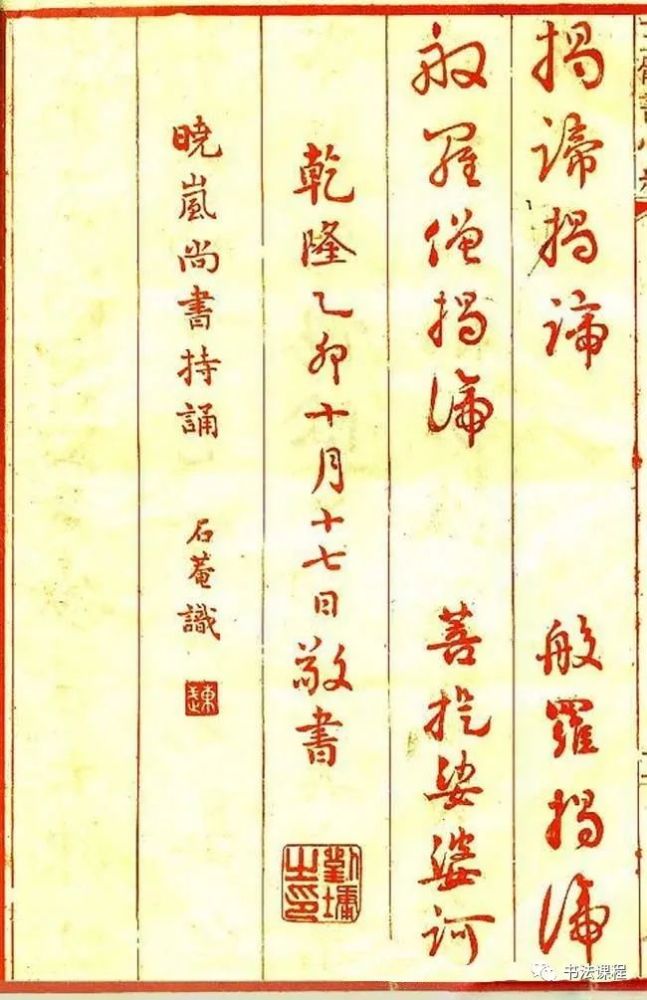 揭諦揭諦 般羅揭諦
般羅僧揭諦 菩提娑婆訶
乾隆乙卯十月十七日敬書
劉墉之印
曉嵐尚書持誦 石菴識
书法课程